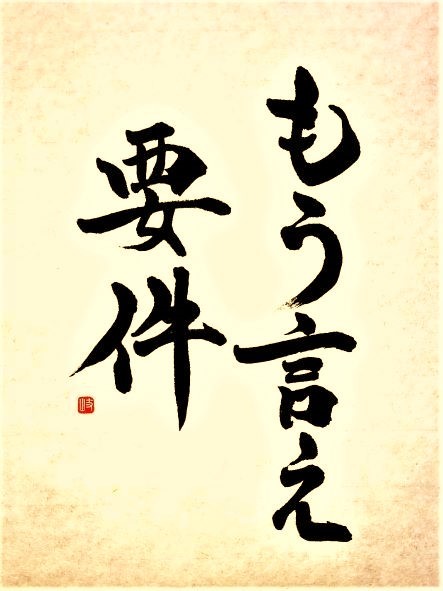 もう言え
要件